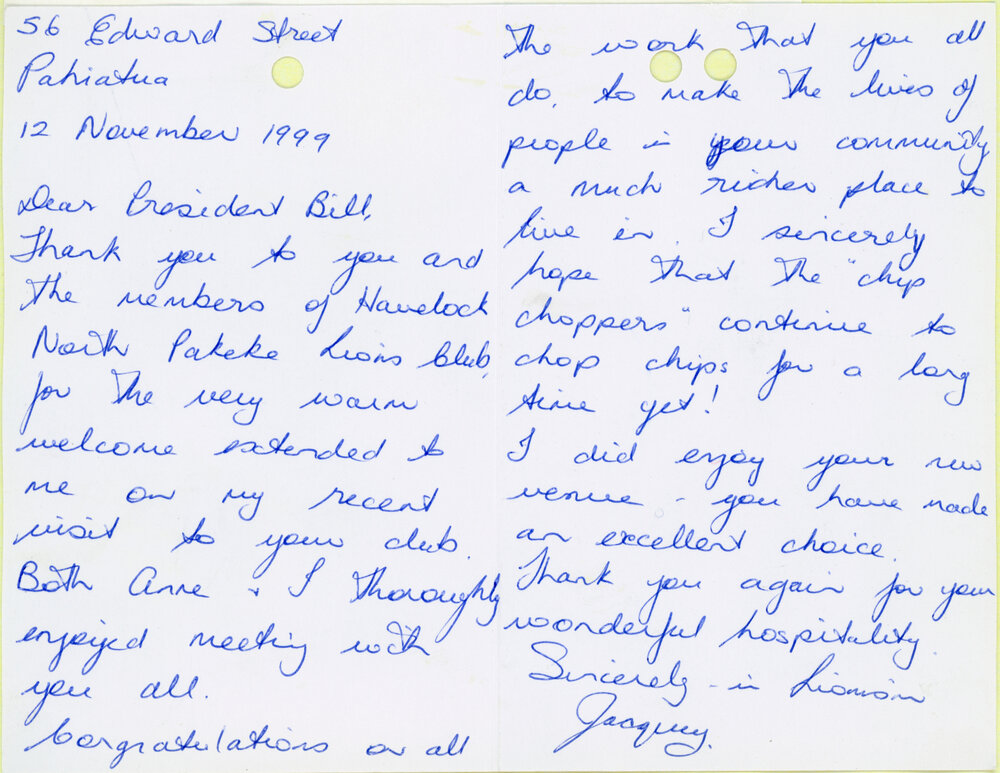 56 Edward Street
Pahiatua
12 November 1999
Dear President Bill,
Thank you to you and
the members of Havelock
North Pakeke Lions Club,
for the very warm
welcome extended to
me on my recent
visit to your club.
Both Anne & I thoroughly
enjoyed meeting with
you all.
Congratulations on all
the work that you all
do, to make the lives of
people in your community
a much richer place to
live in. I sincerely
hope that the "chip
choppers" continue to
chop chips for a long
time yet!
I did enjoy your new
venue - you have made
an excellent choice.
Thank you again for your
wonderful hospitality.
Sincerely - in Lionism
Jacquey.